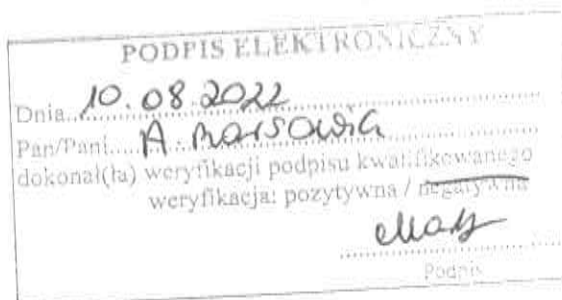 PODPIS ELEKTRONICZNY
Dnia....10.08.2022
Pan/Pani.....A.
dokonał(ła) weryfikacji podpisu kwalifikowanego
weryfikacja: pozytywna / negatywna
Podpis